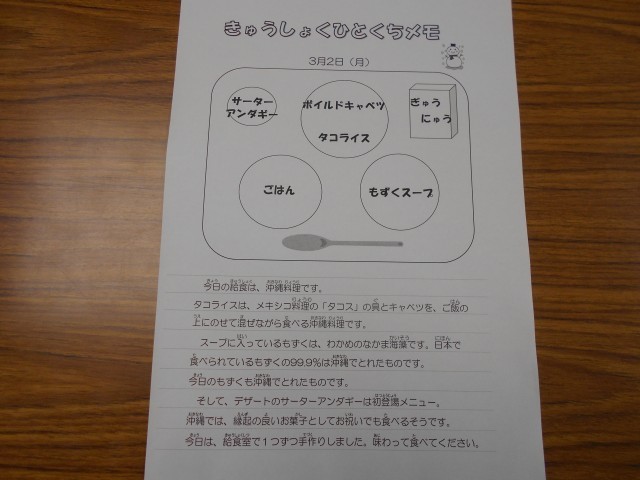 きゅうしょくひとくちメモ
3月2日（月）
サーター
アンダギー
ボイルドキャベツ
タコライス
ぎゅう
にゅう
ごはん
もずくスープ
今日の給食は、沖縄料理です。
タコライスは、メキシコ料理の「タコス」の具とキャベツを、ご飯の
上にのせて混ぜながら食べる沖縄料理です。
スープに入っているもずくは、わかめのなかま海藻です。日本で
食べられているもずくの99.9%は沖縄でとれたものです。
今日のもずくも沖縄でとれたものです。
そして、デザートのサーターアンダギーは初登場メニュー。
沖縄では、縁起の良いお菓子としてお祝いでも食べるそうです。
今日は、給食室で１つずつ手作りしました。味わって食べてください。